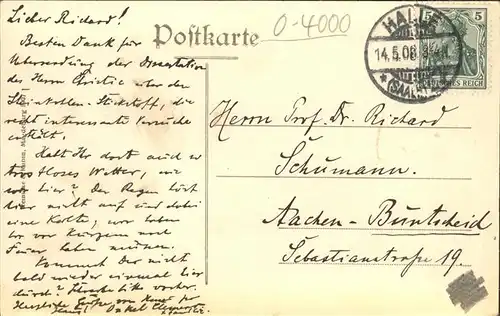 Lieber Richard!
Besten Dank für
Übersendung der Dissertation
des Herrn Christie über den
Steinkohlen-Stickstoff, die
recht interessante Versuche
enthält.
Habt Ihr dort auch so
trostloses Wetter, wie
wir hier? Der Regen hört
hier nicht auf und dabei
eine Kälte, wir haben
bis vor Kurzem noch
Feuer haben müssen.
Kommst Du nicht
bald wieder einmal hier
durch? vorher.
Herzliche Grüße von
Onkel
0-4000
Postkarte
HALLE
14.5.08
*(SAALE)
5
DEUTSCHES REICH
Herrn Prof. Dr. Richard
Schumann.
Aachen-Burtscheid
Sebastianstraße 19.